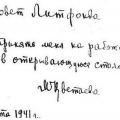 овет Литфонда
принять меня на работу
в открывающуюся столо
МЦветаева
та 1941 г.